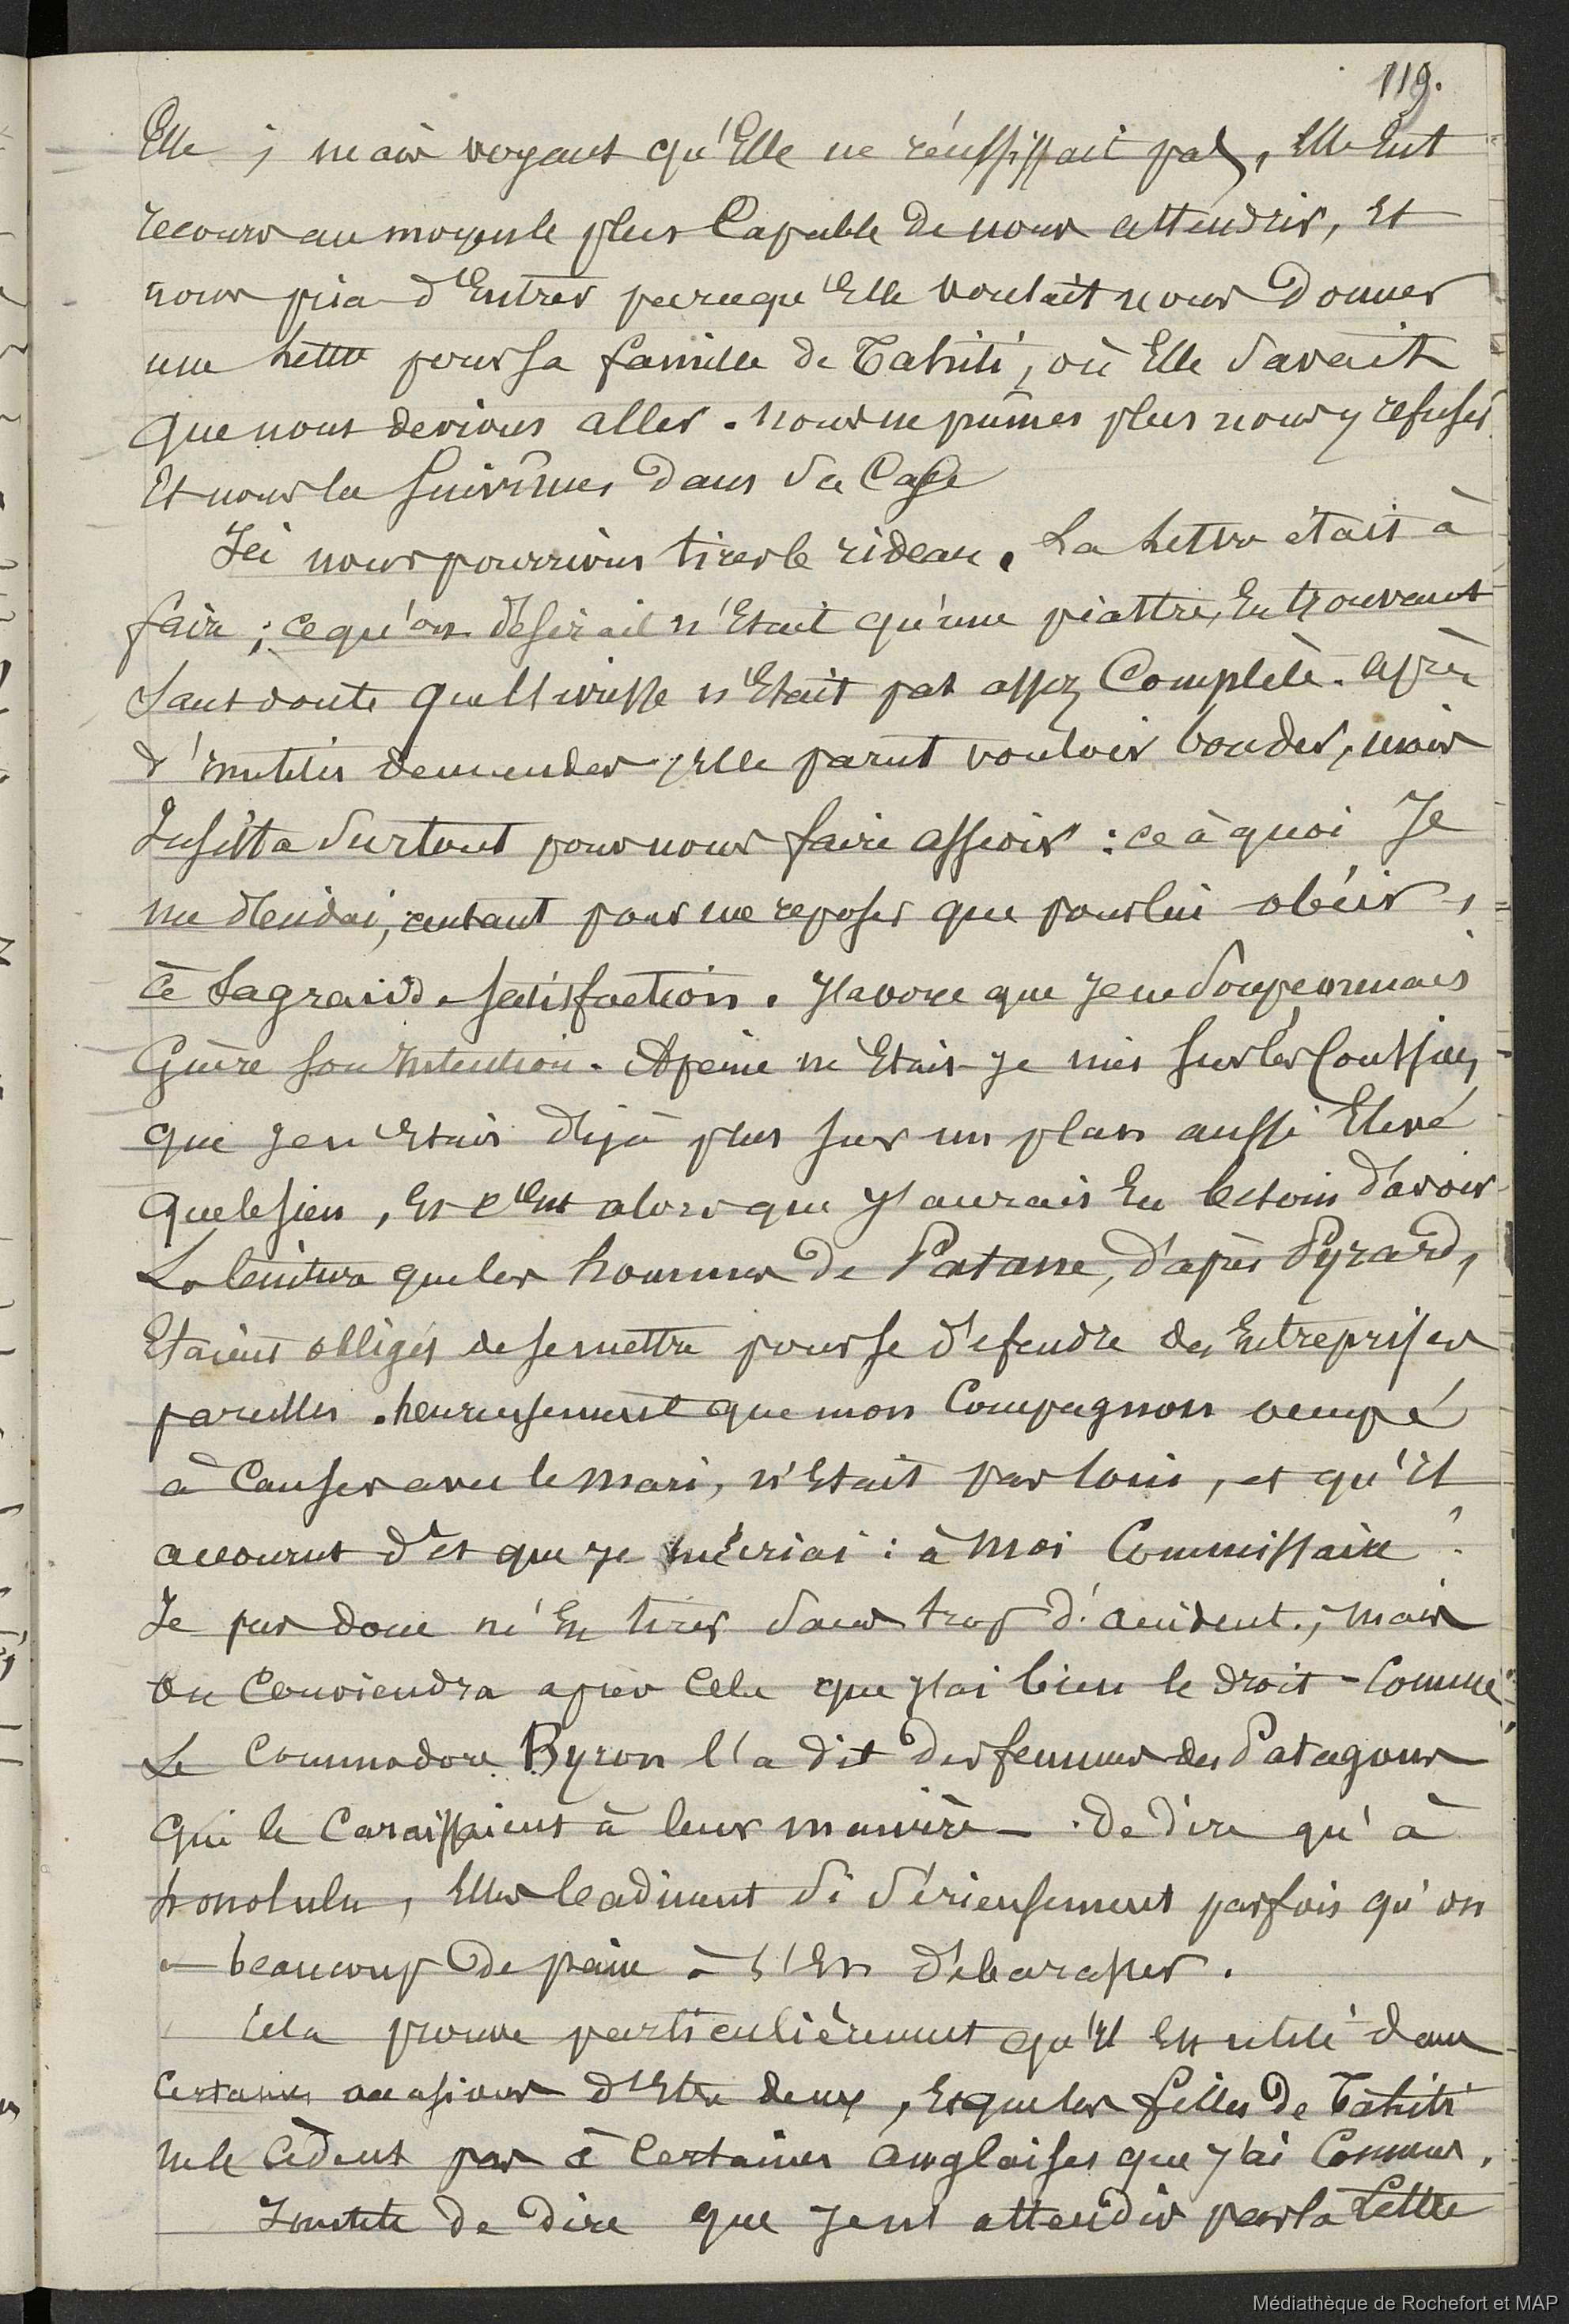 119.
Elle ; mais voyant qu'Elle ne réussissait pas, Elle Eut
recours au moyen le plus Capable de nous attendrir, Et
nous pria d'Entrer parce qu'Elle voulait nous Donner
une Lettre pour sa famille de Tahiti, où Elle Savait
que nous devions aller. nous ne pûmes plus nous y refuser
Et nous la Suivîmes Dans Sa Case
Ici nous pourrions tirer le rideau. La Lettre était à
faire ; ce qu'on désirait n'Etait qu'une piastre, En trouvant
Sans doute que l'ivresse n'Etait pas assez Complète. après
d'inutiles demandes, Elle parut vouloir bouder, mais
Insista Surtout pour nous faire asseoir : ce à quoi Je
me décidai, autant pour me reposer que pour lui obéir,
à Sa grande satisfaction. J'avoue que Je ne Soupçonnais
Guère son Intention. A peine m'Etais-je mis sur les Coussins
que je n'Etais déjà plus sur un plan aussi Elevé
que le sien, Et c'Est alors que J'aurais Eu besoin d'avoir
La ceinture que les hommes de Patane, d'après Pyrard,
Etaient obligés de se mettre pour se défendre des Entreprises
pareilles. heureusement que mon Compagnon occupé
à Causer avec le mari, n'Etait pas loin, et qu'Il
accourut dès que je m'écriai : à Moi Commissaire !
Je pus donc m'En tirer Sans trop d'accident ; mais
on Conviendra après Cela que J'ai bien le droit - Comme
Le Commodore Byron l'a dit Des femmes des Patagons
qui le Caraissaient à leur manière - De dire qu'à
honolulu, Elles badinent Si Sérieusement parfois qu'on
a beaucoup De peine à s'En débarasser.
Cela prouve particulièrement qu'Il Est utile dans
Certaines occasions d'Etre deux, Et que les filles De Tahiti
ne le Cèdent pas à Certaines anglaises que j'ai Connues.
Inutile de Dire que Je n'attendis pas la Lettre
Médiathèque de Rochefort et MAP